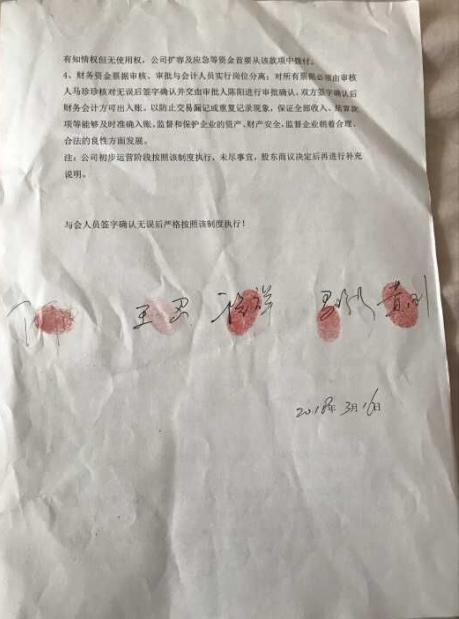 有知情权但无使用权，公司扩容及应急等资金首要从该款项中拨付。
4、财务资金票据审核、审批与会计人员实行岗位分离：对所有票据必须由审核
人马珍珍核对无误后签字确认并交由审批人陈阳进行审批确认，双方签字确认后
财务会计方可出入账，以防止交易漏记或重复记录现象，保证全部收入、结算款
项等能够及时准确入账，监督和保护企业的资产、财产安全，监督企业朝着合理、
合法的良性方面发展。
注：公司初步运营阶段按照该制度执行，未尽事宜，股东商议决定后再进行补充
说明。
与会人员签字确认无误后严格按照该制度执行！
2018年3月16日